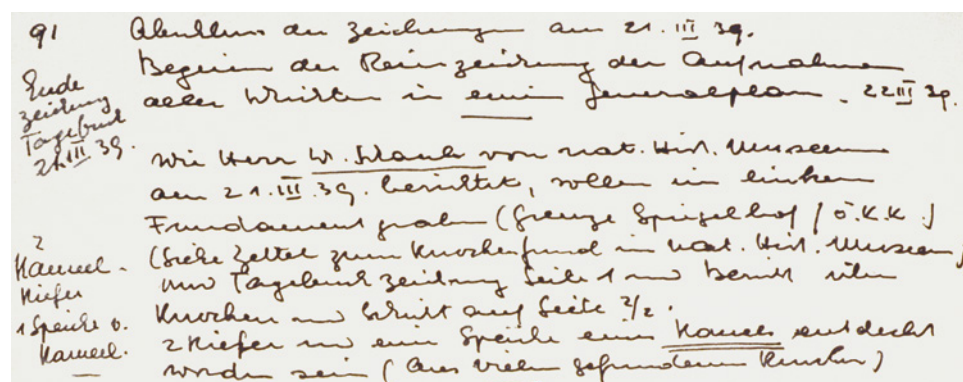 91
Abschluss der Zeichnungen am 21. III 39.
Beginn der Reinzeichnung der Aufnahmen
aller Schichten in einem Generalplan. 22 III 39.
Ende
Zeichnung
Tagebuch
21. III 39.
Wie Herr W. Schaub von nat. Hist. Museum
am 21. III. 39. berichtet, sollen im linken
Fundamentgraben (Grenze Spiegelhof / Ö.K.K.)
(Siehe Zettel zum Knochenfund im nat. Hist. Museum)
und Tagebuchzeichnung Seite 1 und Bericht über
Knochen und Schicht auf Seite 2/2.
2 Kiefer und eine Speiche eines Kamels entdeckt
worden sein (aus vielen gefundenen Knochen)
2
Kameel.
Kiefer
1 Speiche v.
Kameel.